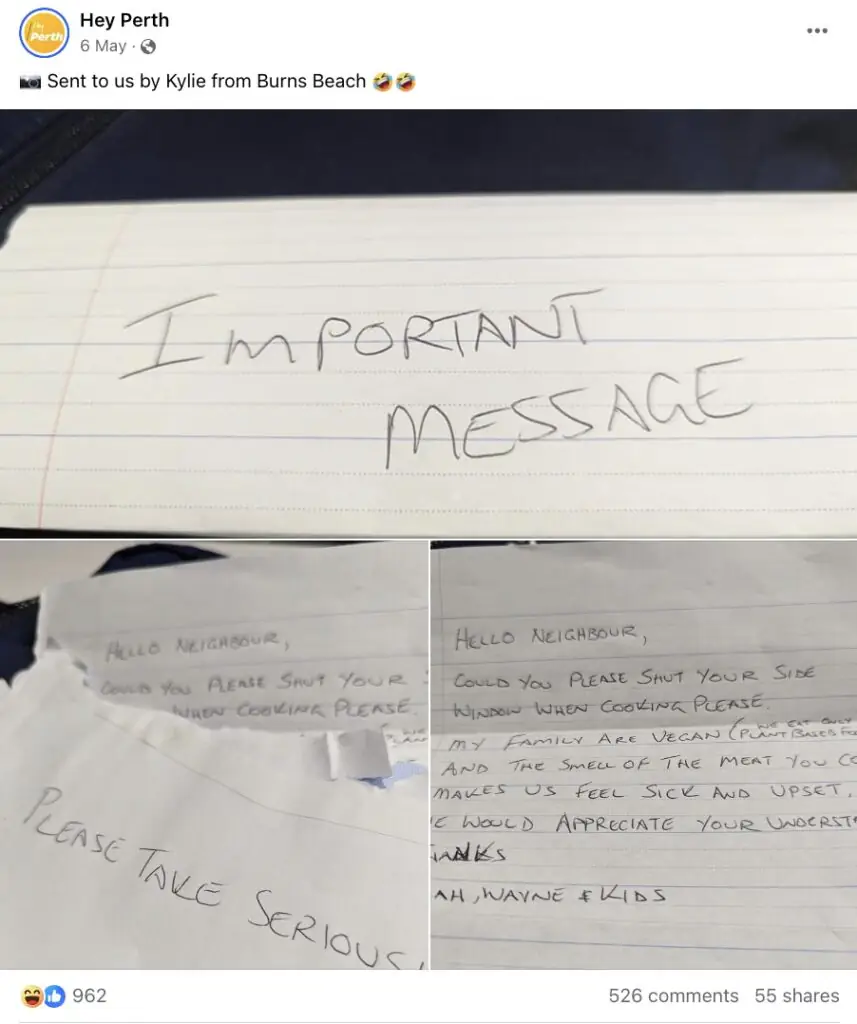 Hey Perth
Hey Perth
6 May
Sent to us by Kylie from Burns Beach
IMPORTANT
MESSAGE
HELLO NEIGHBOUR,
COULD YOU PLEASE SHUT YOUR
WHEN COOKING PLEASE.
PLEASE TAKE SERIOUS
HELLO NEIGHBOUR,
COULD YOU PLEASE SHUT YOUR SIDE
WINDOW WHEN COOKING PLEASE.
MY FAMILY ARE VEGAN (WE EAT ONLY
PLANT BASED
AND THE SMELL OF THE MEAT YOU
MAKES US FEEL SICK AND UPSET.
WOULD APPRECIATE YOUR
AH, WAYNE & KIDS
962
526 comments 55 shares